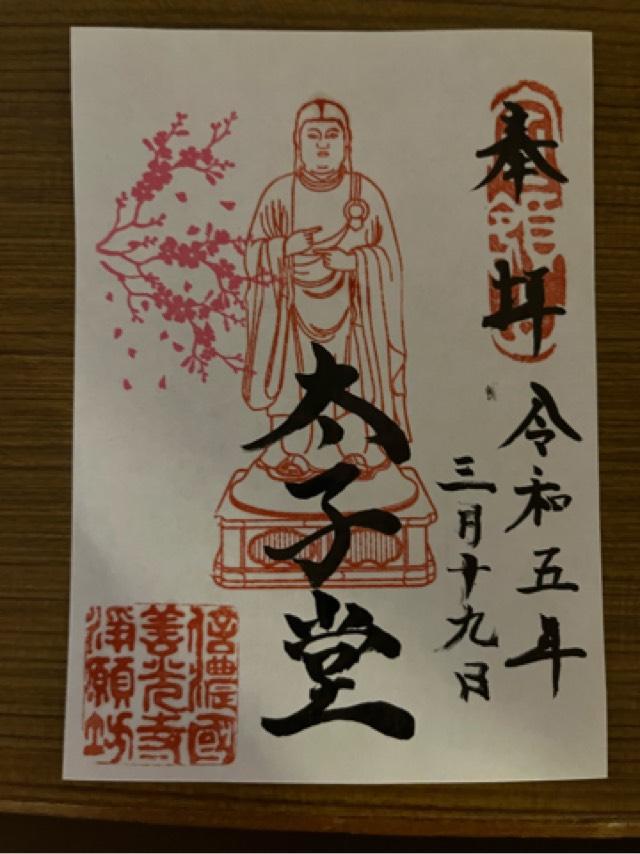 奉拝
令和五年
三月十九日
太子堂
信濃國
善光寺
淨願坊